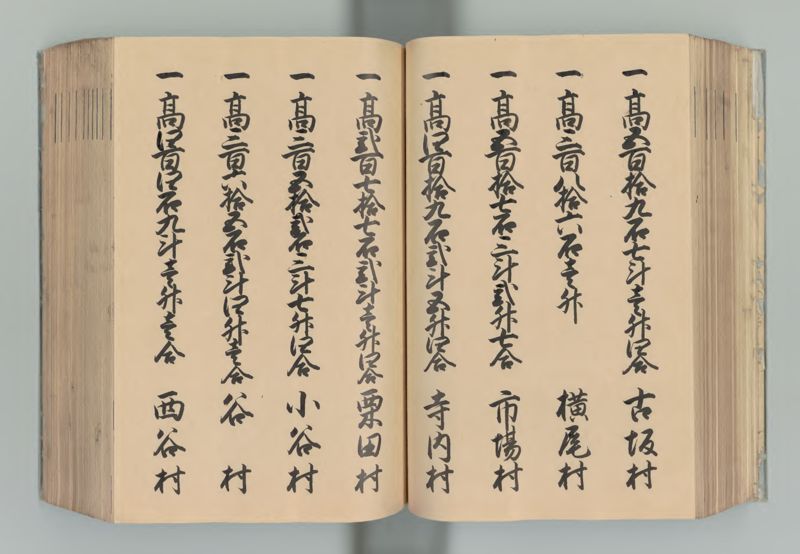 一 高五百拾九石七斗壱升四合 古坂村
一 高三百八拾六石壱升 横尾村
一 高五百拾七石三斗弐升七合 市場村
一 高四百拾九石弐斗五升四合 寺内村
一 高弐百七拾七石弐斗壱升四合 栗田村
一 高三百五拾弐石三斗七升四合 小谷村
一 高三百六拾五石弐斗四升壱合 谷村
一 高四百四石九斗壱升壱合 西谷村